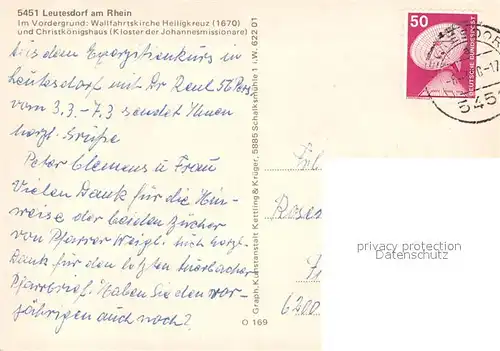 5451 Leutesdorf am Rhein
Im Vordergrund: Wallfahrtskirche Heiligkreuz (1670)
und Christkönigshaus (Kloster der Johannesmissionare)
Aus dem Exerzitienkurs in
Leutesdorf mit Dr. Paul 50 Pers
vom 3.3.-7.3 sendet Ihnen
herzl. Grüße
Peter Clemens u Frau
Vielen Dank für die Hin-
weise der beiden Bücher
von Pfarrer Weigl. Auch herzl.
Dank für den letzten
Pfarrbrief. Haben Sie den vor-
jährigen auch noch?
Graph. Kunstanstalt Kettling & Krüger, 5885 Schalksmühle 1 · i.W. 622 01
O 169
50
DEUTSCHE BUNDESPOST
545
Rosen
6200
privacy protection
Datenschutz